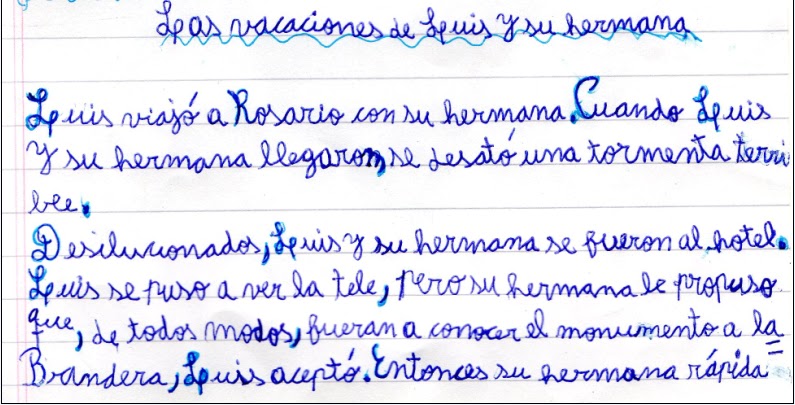 Las vacaciones de Luis y su hermana
Luis viajó a Rosario con su hermana. Cuando Luis
y su hermana llegaron, se desató una tormenta terri
ble.
Desilucionados, Luis y su hermana se fueron al hotel.
Luis se puso a ver la tele, pero su hermana le propuso
que, de todos modos, fueran a conocer el monumento a la
Brandera, Luis aceptó. Entonces su hermana rápida=